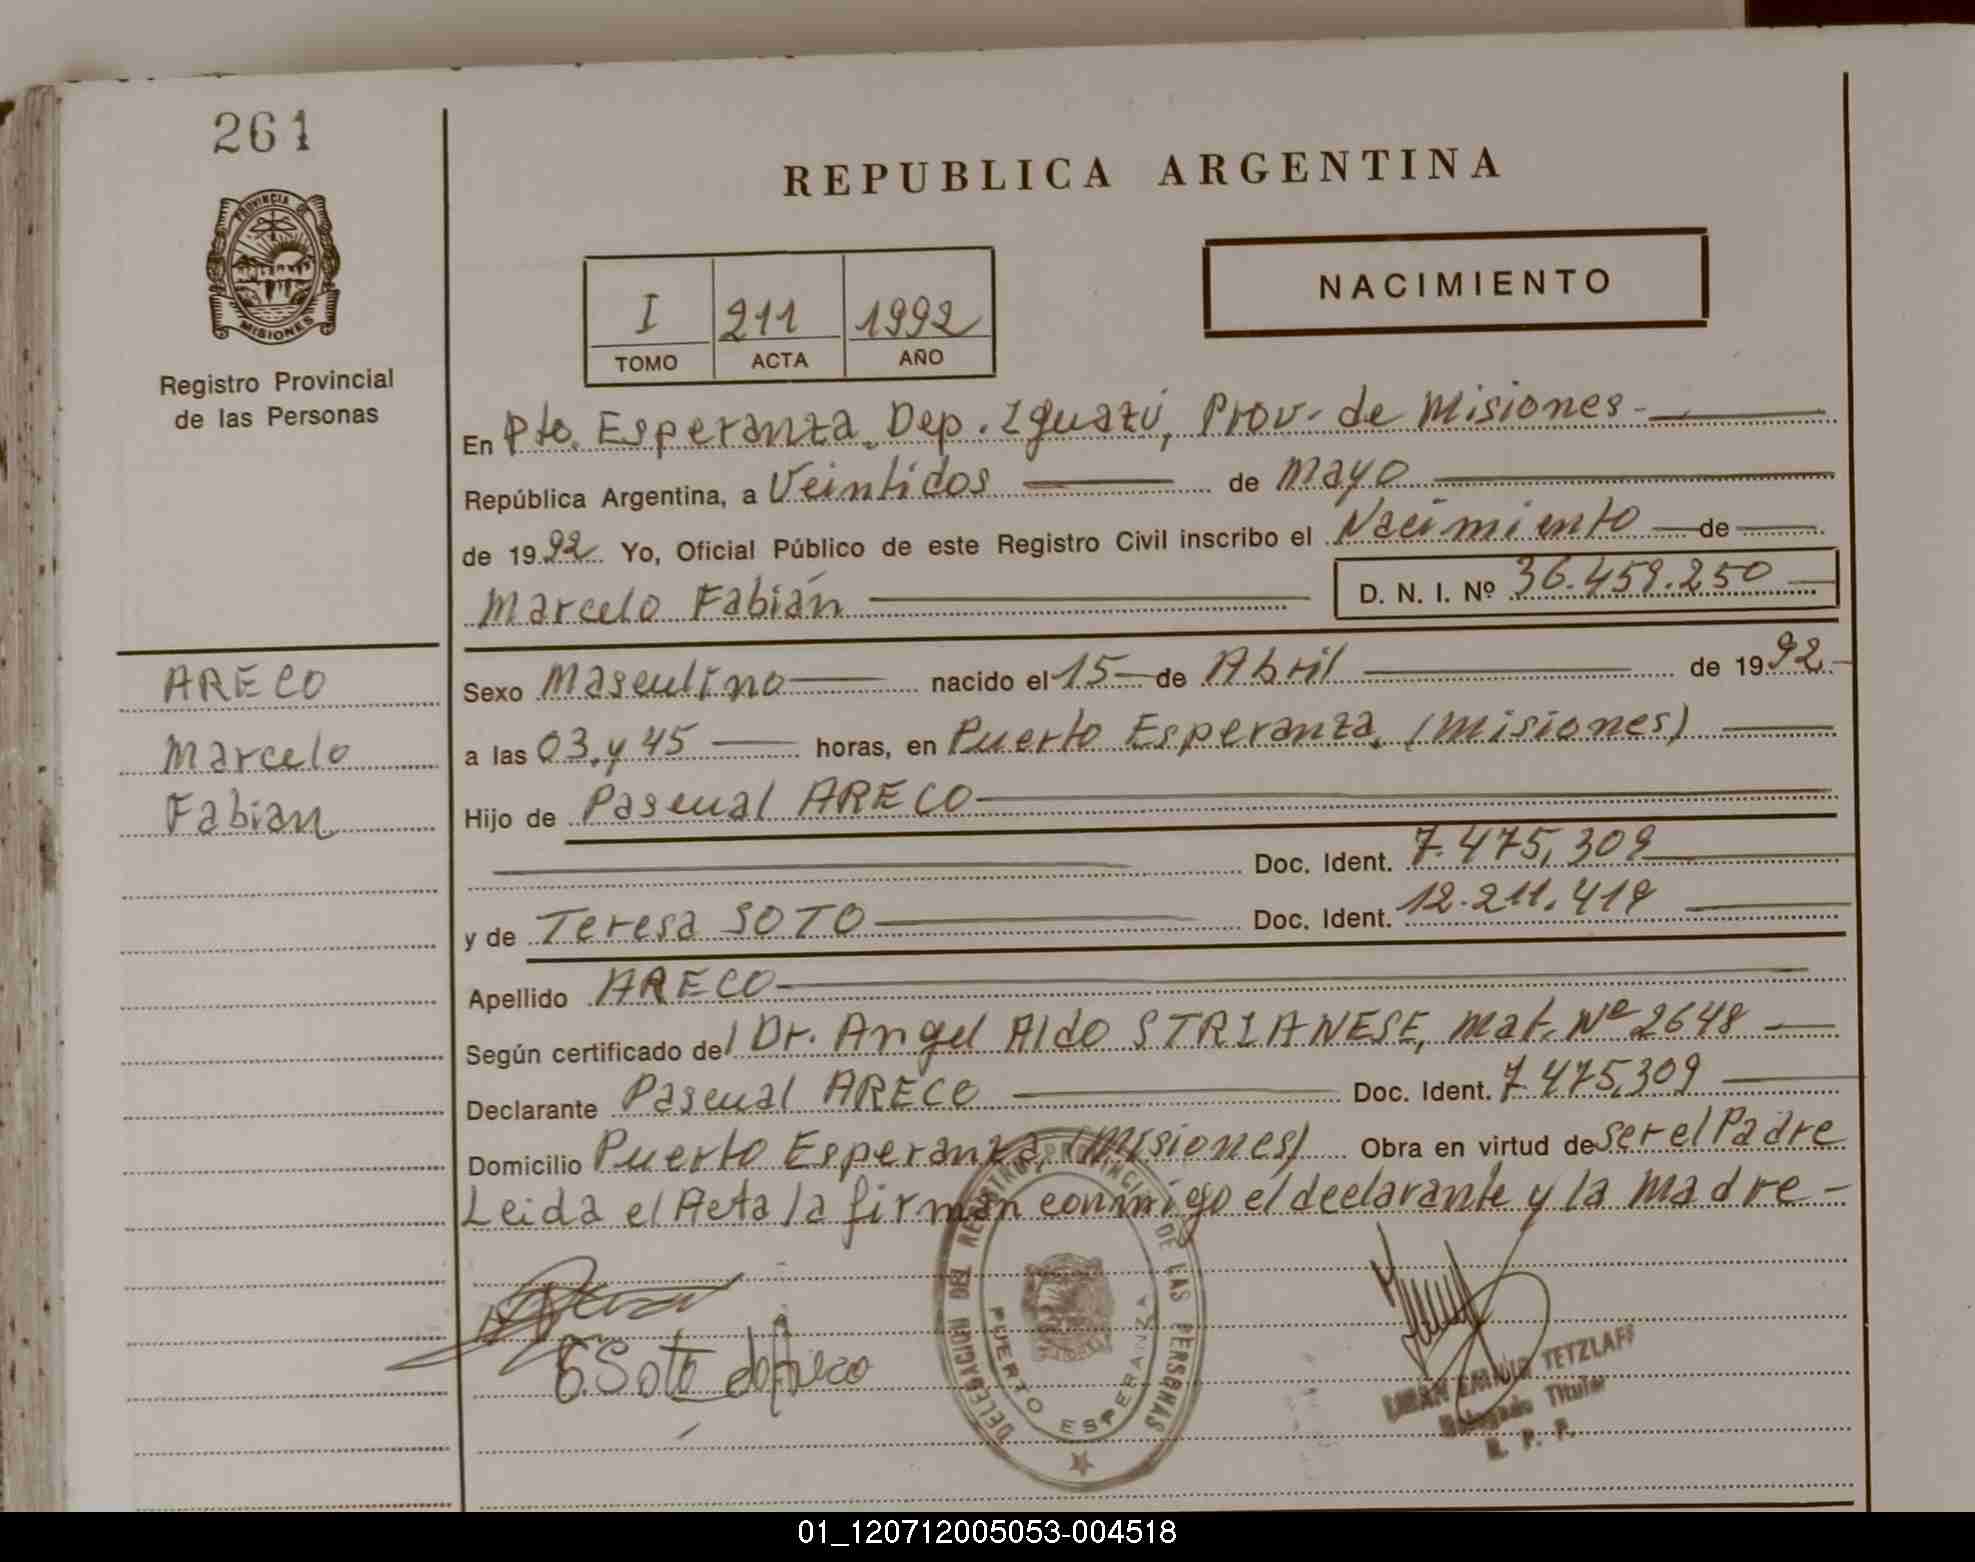 261
PROVINCIA DE
MISIONES
Registro Provincial
de las Personas
REPUBLICA ARGENTINA
NACIMIENTO
I 211 1992
TOMO ACTA AÑO
En Pto. Esperanza, Dep. Iguazú, Prov. de Misiones
República Argentina, a Veintidos de Mayo
de 1992 Yo, Oficial Público de este Registro Civil inscribo el Nacimiento de
Marcelo Fabián D. N. I. Nº 36.459.250
ARECO
Marcelo
Fabian
Sexo Masculino nacido el 15 de Abril de 1992
a las 03 y 45 horas, en Puerto Esperanza, (Misiones)
Hijo de Pascual ARECO
Doc. Ident. 7.475.309
y de Teresa SOTO Doc. Ident. 12.211.419
Apellido ARECO
Según certificado del Dr. Angel Aldo STRIANESE, Mat. Nº 2648
Declarante Pascual ARECO Doc. Ident. 7.475.309
Domicilio Puerto Esperanza, (Misiones) Obra en virtud de ser el Padre
Leida el Acta la firman conmigo el declarante y la Madre -
Soto de Areco
DELEGACION DEL REGISTRO PROVINCIAL DE LAS PERSONAS
PUERTO ESPERANZA
TETZLAFF
Delegado Titular
R. P. P.
01_120712005053-004518